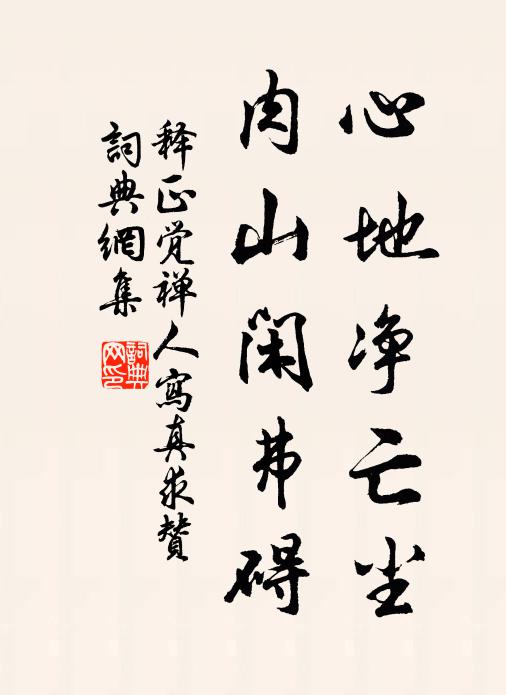 心地净亡尘
肉山闲弗碍
释正觉禅人寫真求赞
詞典網集
詞典网印